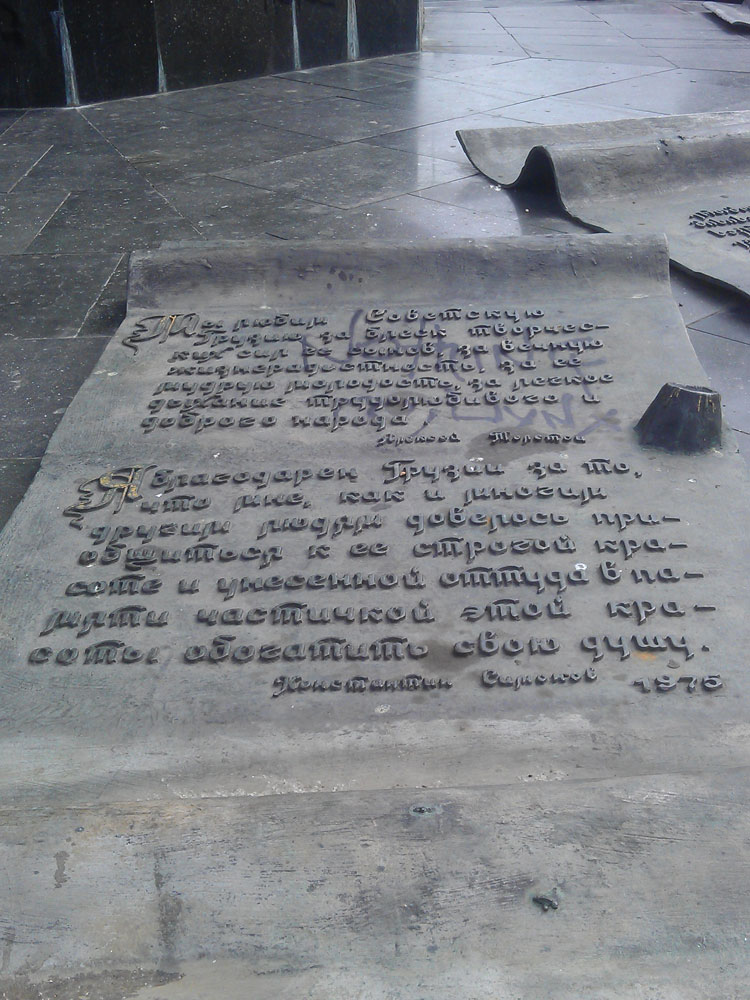 Мы любим Советскую
Грузию за блеск творчес-
ких сил ее сынов, за вечную
жизнерадостность, за ее
мудрую молодость, за легкое
дыхание трудолюбивого и
доброго народа.
Алексей Толстой
Я благодарен Грузии за то,
что мне, как и многим
другим людям довелось при-
общиться к ее строгой кра-
соте и унесенной оттуда в па-
мяти частичкой этой кра-
соты обогатить свою душу.
Константин Симонов 1975